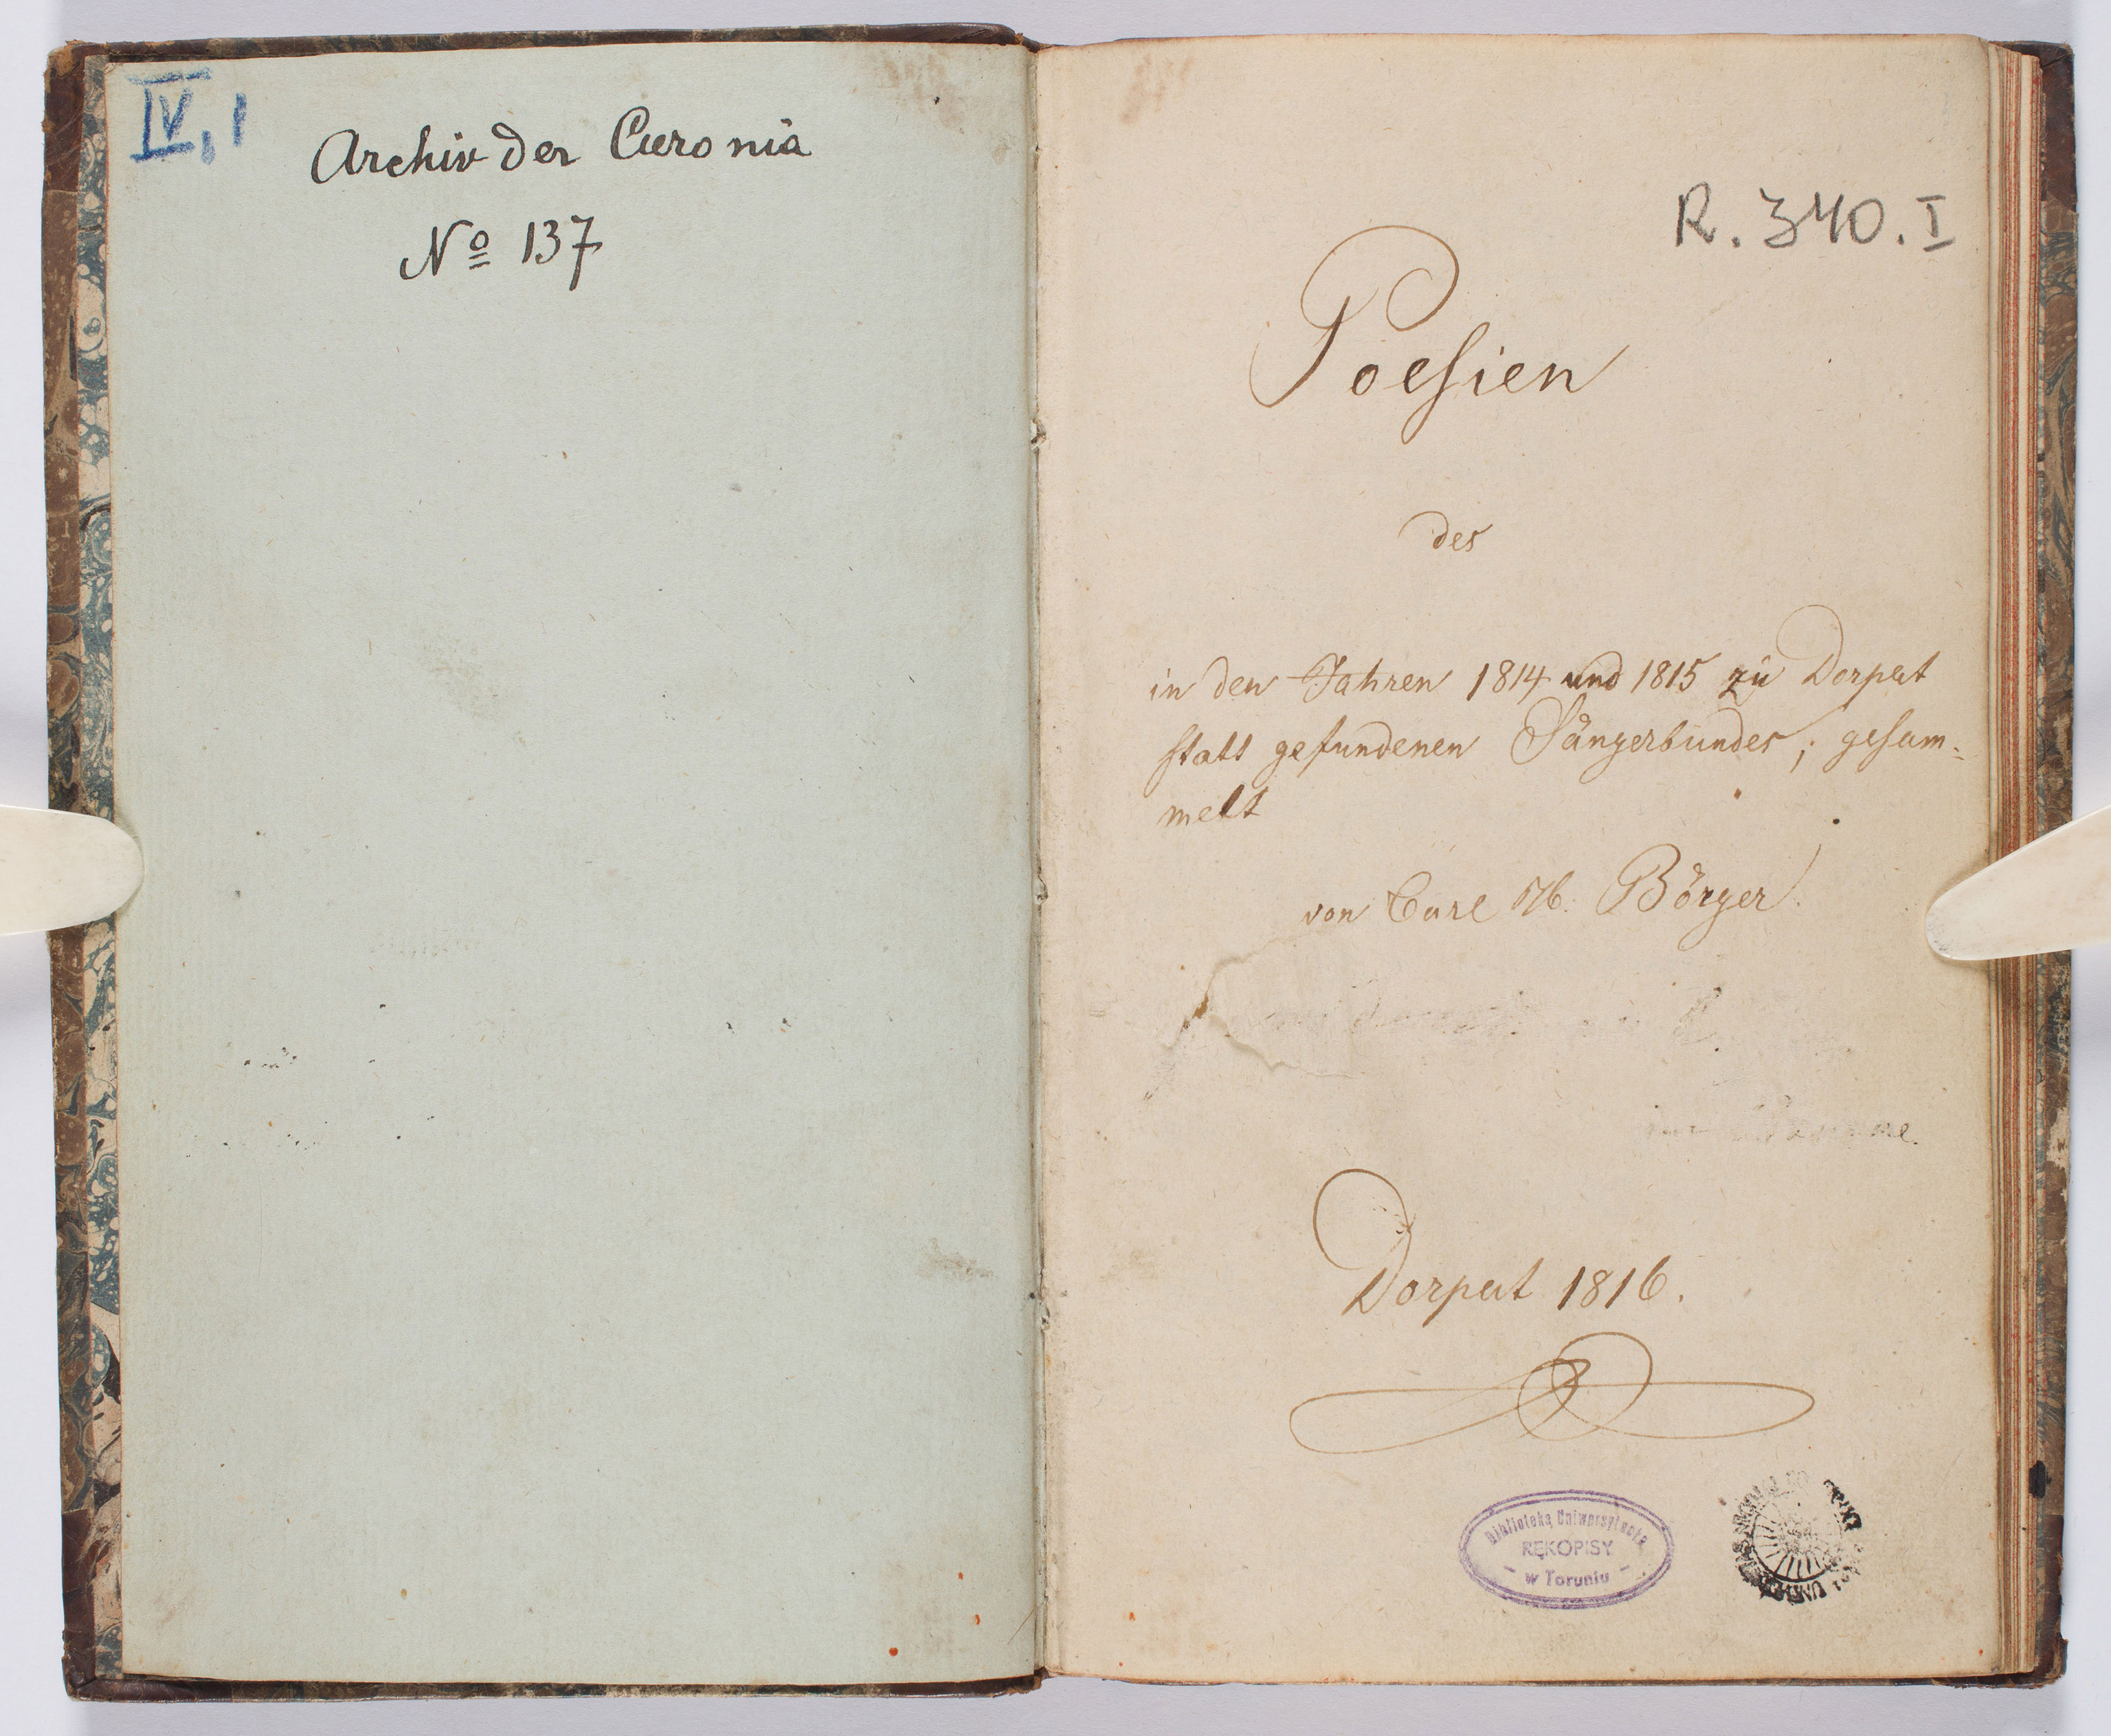 IV, 1
Archiv der Curonia
No 137
R. 340. I
Poesien
des
in den Jahren 1814 und 1815 zu Dorpat
statt gefundenen Sängerbundes, gesam-
melt
von Carl
Börger.
Dorpat 1816.
Biblioteka Uniwersytecka
RĘKOPISY
- w Toruniu -